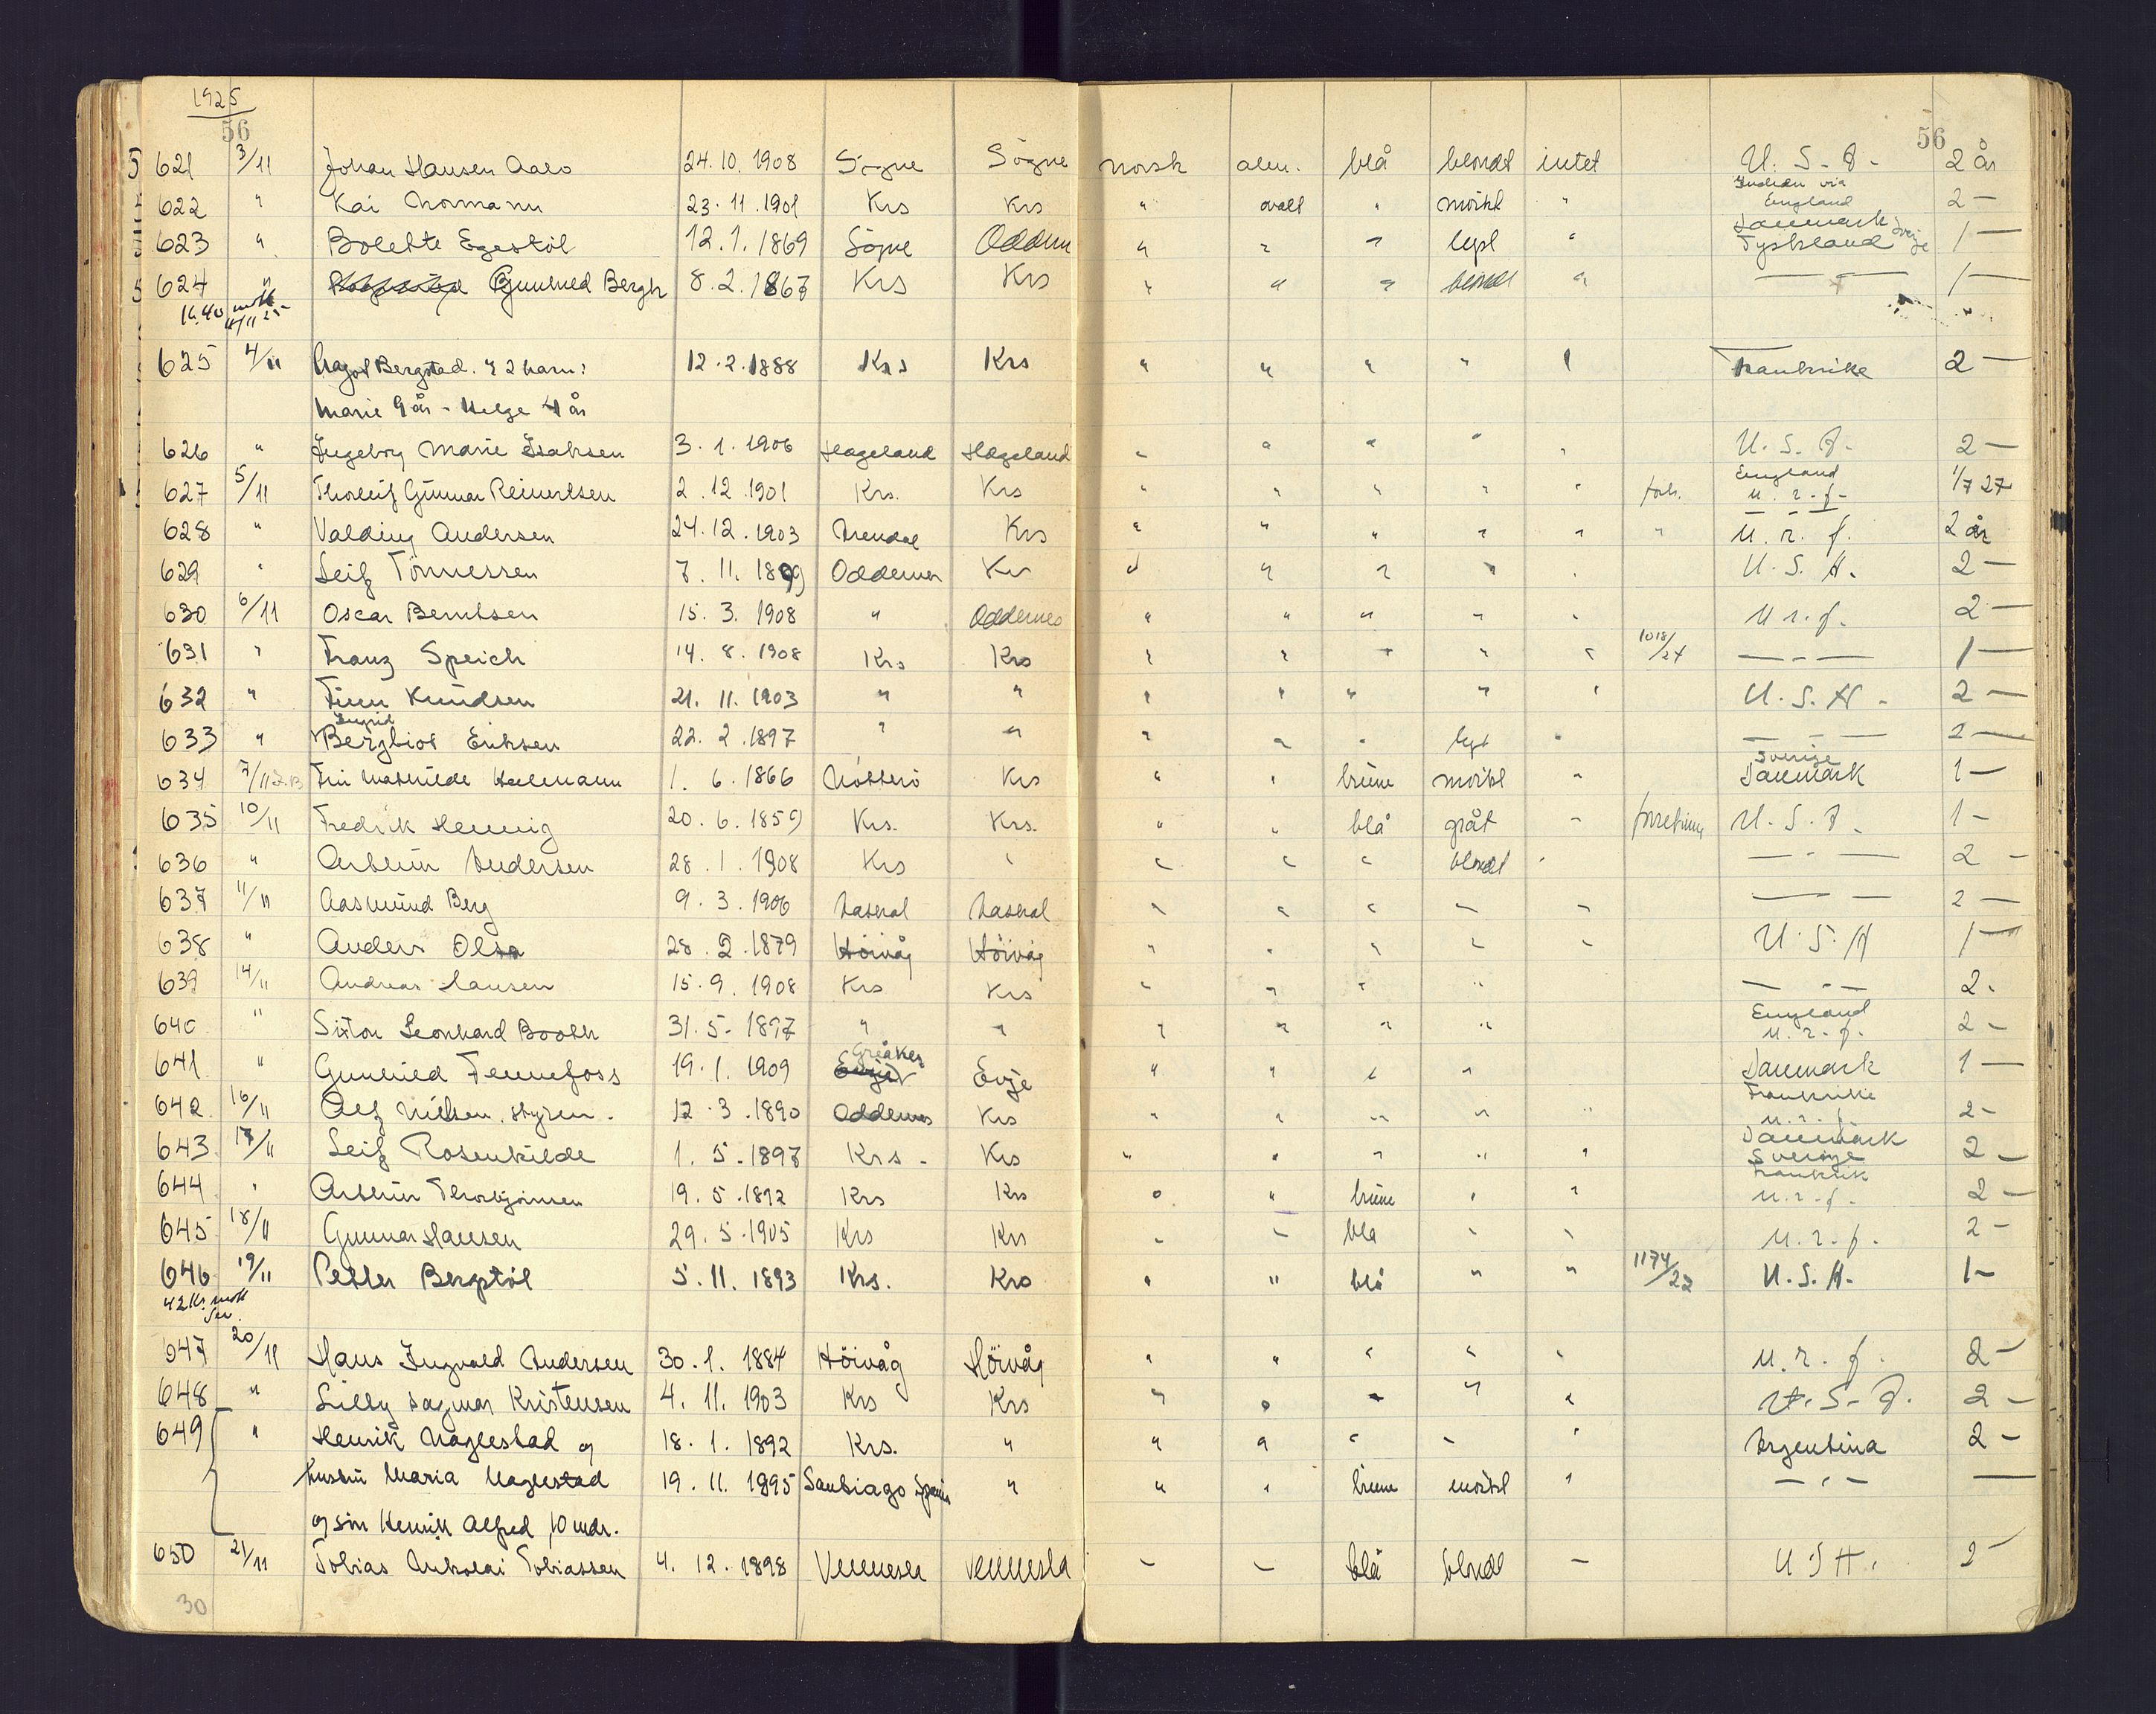 1925
56 56
621 3/11 Johan Hansen Aaro 24.10.1908 Søgne Søgne norsk alm. blå blondt intet U.S.A. 2 år
622 " Kai Normann 23.11.1901 Krs Krs " ovalt " mørkt " via England 2 —
623 " Bolette Egestøl 12.1.1869 Søgne Oddernes " " " lyst " Danmark Sverige Tyskland 1 —
624 " Gunhild Bergh 8.2.1867 Krs Krs " " " blondt " — " — 1 —
16.40 mott 4/11 25
625 4/11 Aagot Bergstad. & 2 barn: 12.2.1888 Krs Krs " " " " " Frankrike 2 —
Marie 9 år - Helge 4 år
626 " Ingeborg Marie Isaksen 3.1.1906 Hægeland Hægeland " " " " " U.S.A. 2 —
627 5/11 Thorleif Gunnar Reinertsen 2.12.1901 Krs. Krs " " " " " forh. England u.r.f. 1/7 27
628 " Valding Andersen 24.12.1903 Arendal Krs " " " " " " u.r.f. 2 år
629 " Leif Tønnessen 7.11.1899 Oddernes Krs " " " " " U.S.A. 2 —
630 6/11 Oscar Berntsen 15.3.1908 " Oddernes " " " " " u.r.f. 2 —
631 " Franz Speich 14.8.1908 Krs Krs " " " " " 1018/24 — " — 1 —
632 " Finn Knudsen 21.11.1903 " " " " " " " U.S.A. 2 —
633 " Bergliot Ingrid Eriksen 22.2.1897 " " " " " lyst " — " — 2 —
634 7/11 Fru Mathilde Heilmann 1.6.1866 Nøtterø Krs " " brune mørkt " Sverige Danmark 1 —
635 10/11 Fredrik Hennig 20.6.1859 Krs. Krs. " " blå gråt " forretning U.S.A. 1 -
636 " Arthur Andersen 28.1.1908 Krs " " " " blondt " — " — 2 -
637 11/11 Aasmund Berg 9.3.1906 " " " " " — " — 2 —
638 " Anders Olsen 28.2.1879 Høivåg Høivåg " " " " " U.S.A 1 —
639 14/11 Andreas Hansen 15.9.1908 Krs Krs " " " " — " — 2.
640 " Sixton Leonhard Booth 31.5.1897 " " " " " " England u.r.f. 2 -
641 " Gunhild Fennefoss 19.1.1909 Greåker Evje " " " " Danmark 1 —
642 16/11 Alf Nielsen, styrm. 12.3.1890 Oddernes Krs " " " " " Frankrike u.r.f. 2 -
643 17/11 Leif Rosenkilde 1.5.1897 Krs. Krs " " " " " Danmark Sverige 2 —
644 " Arthur Thorbjørnsen 19.5.1892 Krs Krs " " brune " " Frankrik u.r.f. 2 —
645 18/11 Gunnar Hansen 29.5.1905 Krs Krs " " blå " " u.r.f. 2 -
646 19/11 Petter Bergstøl 5.11.1893 Krs. Krs " " blå " " 1174/22 U.S.A. 1 -
42 Kr. mott
647 20/11 Hans Ingvald Andersen 30.1.1884 Høivåg Høivåg " " " " " u.r.f. 2 -
648 " Lilly Dagmar Kristensen 4.11.1903 Krs Krs " " " " " U.S.A. 2 -
649 " Henrik Naglestad og 18.1.1892 Krs. " " " " " " Argentina 2 -
hustru Maria Naglestad 19.11.1895 Santiago Spania " " " brune mørkt " — " — —
og søn Henrik Alfred 10 mdr.
650 21/11 Tobias Nikolai Tobiassen 4.12.1898 Vennesla Vennesla — — blå blondt — U.S.A. 2 -
30